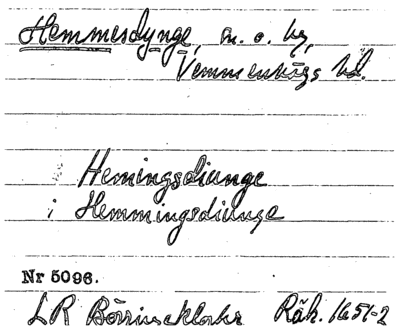 Hemmesdynge, sn. o. by,
Vemmenhögs hd.
Hemingsdiunge
i Hemmingsdiunge
Nr 5096.
LR Börringeklosters Räk. 1651-2